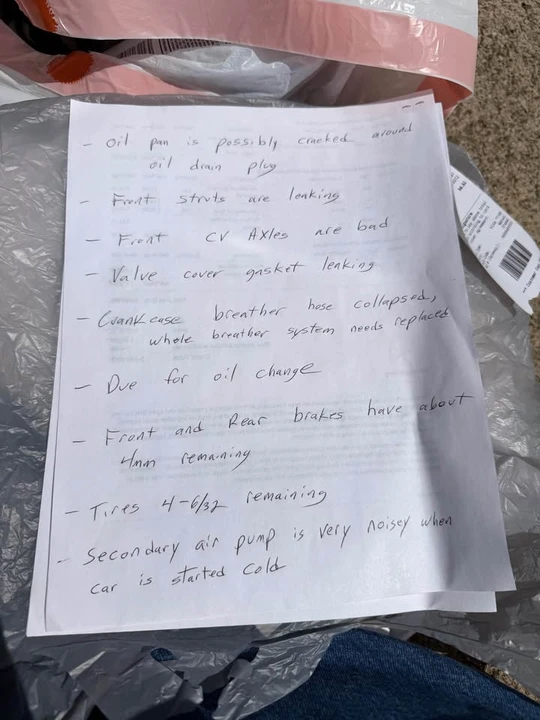 - Oil pan is possibly cracked around
oil drain plug
- Front struts are leaking
- Front CV Axles are bad
- Valve cover gasket leaking
- Crankcase breather hose collapsed,
whole breather system needs replaced
- Due for oil change
- Front and Rear brakes have about
4mm remaining
- Tires 4-6/32 remaining
- Secondary air pump is very noisey when
car is started cold